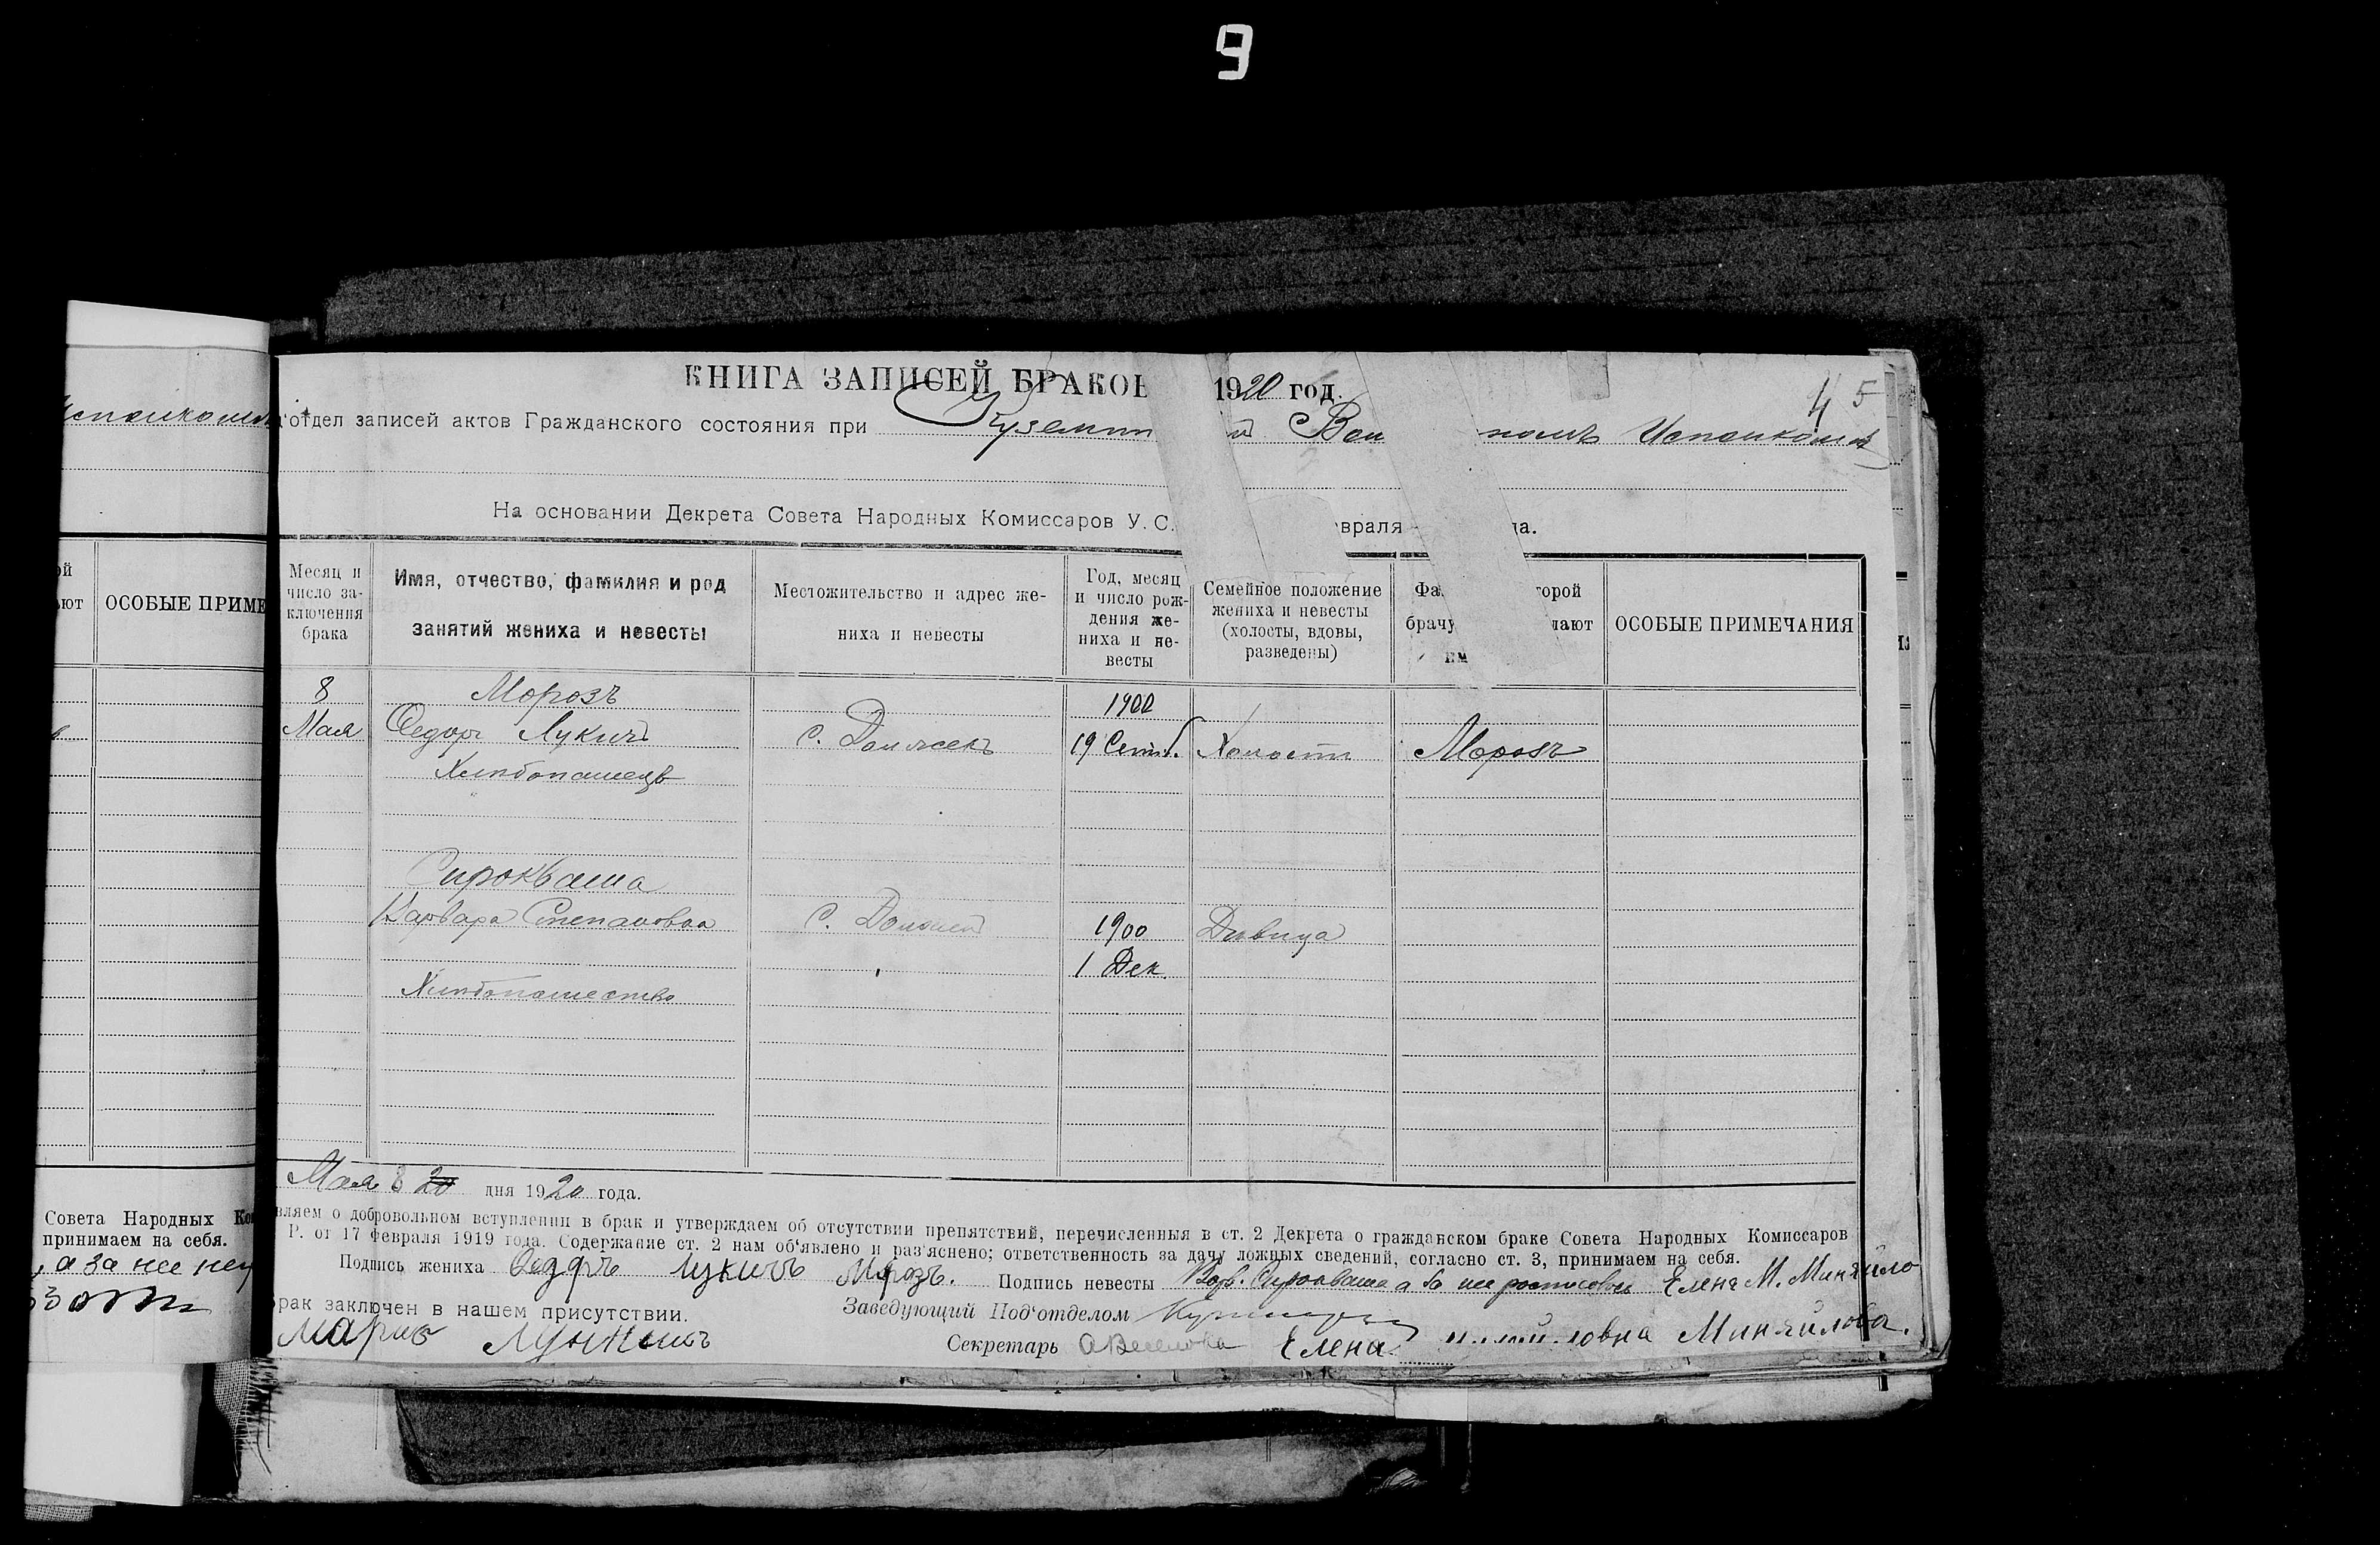 9
КНИГА ЗАПИСЕЙ БРАКОВ 1920 год.
45
отдел записей актов Гражданского состояния при Куземин й Вол помъ Исполкомѣ
На основании Декрета Совета Народных Комиссаров У. С. враля
Месяц и число заключения брака
Имя, отчество, фамилия и род занятий жениха и невесты
Местожительство и адрес жениха и невесты
Год, месяц и число рождения жениха и невесты
Семейное положение жениха и невесты (холосты, вдовы, разведены)
Фа торой
брачу лают
ОСОБЫЕ ПРИМЕЧАНИЯ
8 Морозъ 1900
Мая Федоръ Лукичъ с. Должекъ 19 Сент. Холостъ Морозъ
Хлѣбопашецъ
Сирокваша
Варвара Степановна с. 1900 Дѣвица
1 Дек
Хлѣбопашество
Мая 8 20 дня 1920 года.
вляем о добровольном вступлении в брак и утверждаем об отсутствии препятствий, перечисленныя в ст. 2 Декрета о гражданском браке Совета Народных Комиссаров
Р. от 17 февраля 1919 года. Содержание ст. 2 нам об‘явлено и раз‘яснено; ответственность за дачу ложных сведений, согласно ст. 3, принимаем на себя.
Подпись жениха Федоръ Лукичъ Морозъ. Подпись невесты Варв. Сирокваша а за нее росписалась Елена М. Миняйло
рак заключен в нашем присутствии. Заведующий Под‘отделом
Секретарь Елена Миняйлова.
ОСОБЫЕ ПРИМЕ
Совета Народных Ко
принимаем на себя.
, а за нее не